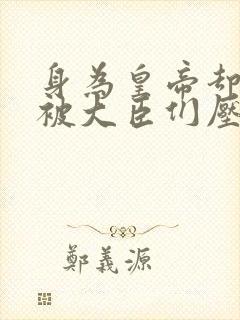 身為皇帝卻
被大臣们壓
鄭義源